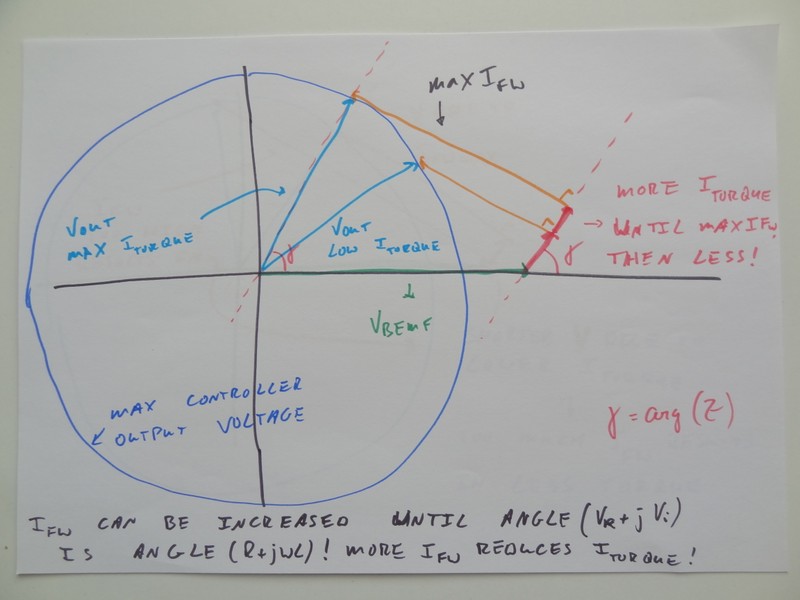 MAX I_FW
VOUT
MAX I_TORQUE
VOUT
LOW I_TORQUE
γ
MORE I_TORQUE
→ UNTIL MAX I_FW
γ THEN LESS!
V_BEMF
MAX CONTROLLER
OUTPUT VOLTAGE
γ = arg(Z)
I_FW CAN BE INCREASED UNTIL ANGLE (V_R + j V_i)
IS ANGLE (R+jWL)! MORE I_FW REDUCES I_TORQUE!